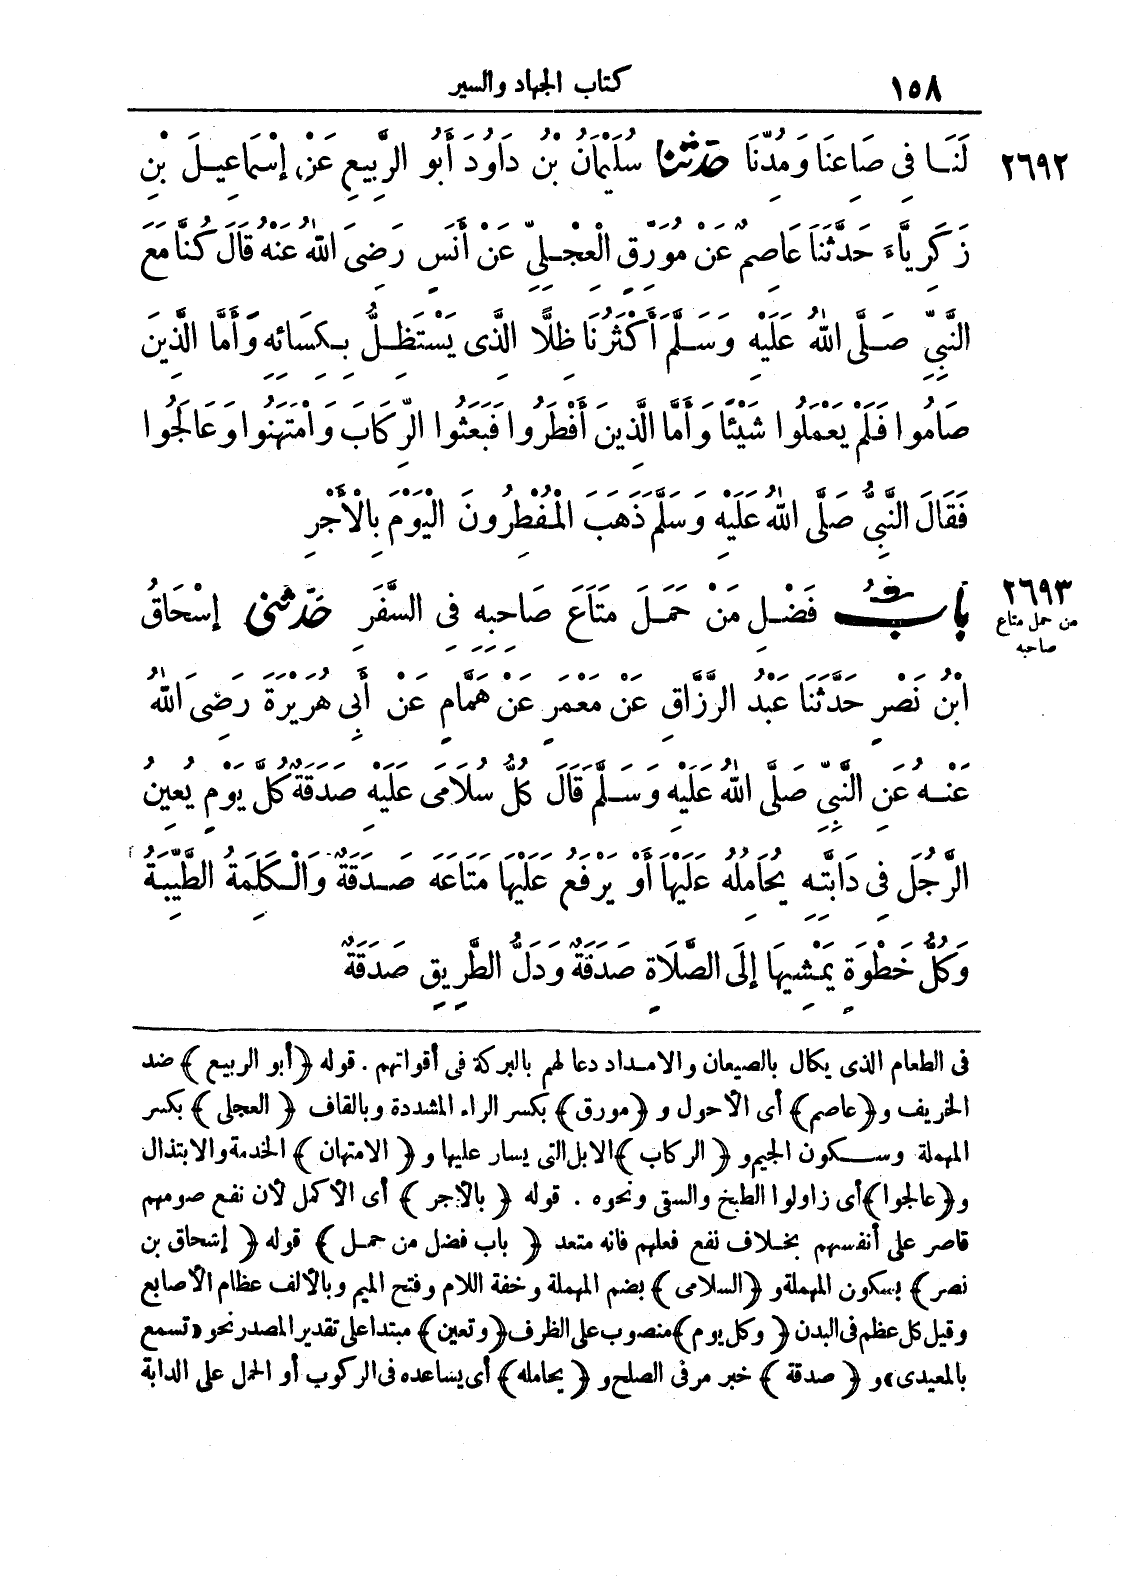 ١٥٨ كتاب الجهاد والسير
٢٦٩٢ لَنَا فِى صَاعِنَا وَمُدِّنَا حَدَّثَنَا سُلَيْمَانُ بْنُ دَاوُدَ أَبُو الرَّبِيعِ عَنْ إِسْمَاعِيلَ بْنِ
زَكَرِيَّاءَ حَدَّثَنَا عَاصِمٌ عَنْ مُوَرِّقٍ الْعِجْلِيِّ عَنْ أَنَسٍ رَضِىَ اللهُ عَنْهُ قَالَ كُنَّا مَعَ
النَّبِيِّ صَلَّى اللهُ عَلَيْهِ وَسَلَّمَ أَكْثَرُنَا ظِلًّا الَّذِى يَسْتَظِلُّ بِكِسَائِهِ وَأَمَّا الَّذِينَ
صَامُوا فَلَمْ يَعْمَلُوا شَيْئًا وَأَمَّا الَّذِينَ أَفْطَرُوا فَبَعَثُوا الرِّكَابَ وَامْتَهَنُوا وَعَالَجُوا
فَقَالَ النَّبِيُّ صَلَّى اللهُ عَلَيْهِ وَسَلَّمَ ذَهَبَ الْمُفْطِرُونَ الْيَوْمَ بِالْأَجْرِ
٢٦٩٣ بابُ فَضْلِ مَنْ حَمَلَ مَتَاعَ صَاحِبِهِ فِى السَّفَرِ حَدَّثَنِى إِسْحَاقُ
من حمل متاع
صاحبه
ابْنُ نَصْرٍ حَدَّثَنَا عَبْدُ الرَّزَّاقِ عَنْ مَعْمَرٍ عَنْ هَمَّامٍ عَنْ أَبِى هُرَيْرَةَ رَضِىَ اللهُ
عَنْهُ عَنِ النَّبِيِّ صَلَّى اللهُ عَلَيْهِ وَسَلَّمَ قَالَ كُلُّ سُلَامَى عَلَيْهِ صَدَقَةٌ كُلَّ يَوْمٍ يُعِينُ
الرَّجُلَ فِى دَابَّتِهِ يُحَامِلُهُ عَلَيْهَا أَوْ يَرْفَعُ عَلَيْهَا مَتَاعَهُ صَدَقَةٌ وَالْكَلِمَةُ الطَّيِّبَةُ
وَكُلُّ خَطْوَةٍ يَمْشِيهَا إِلَى الصَّلَاةِ صَدَقَةٌ وَدَلُّ الطَّرِيقِ صَدَقَةٌ
فى الطعام الذى يكال بالصيعان والامداد دعا لهم بالبركة فى أقواتهم . قوله ﴿أبو الربيع﴾ ضد
الخريف و﴿عاصم﴾ أى الأحول و ﴿مورق﴾ بكسر الراء المشددة وبالقاف ﴿العجلى﴾ بكسر
المهملة وسكون الجيم و ﴿الركاب﴾ الابل التى يسار عليها و ﴿الامتهان﴾ الخدمة والابتذال
و﴿عالجوا﴾ أى زاولوا الطبخ والسقى ونحوه . قوله ﴿بالأجر﴾ أى الأكمل لأن نفع صومهم
قاصر على أنفسهم بخلاف نفع فعلهم فانه متعد ﴿باب فضل من حمل﴾ قوله ﴿إسحاق بن
نصر﴾ بسكون المهملة و ﴿السلامى﴾ بضم المهملة وخفة اللام وفتح الميم وبالألف عظام الأصابع
وقيل كل عظم فى البدن ﴿وكل يوم﴾ منصوب على الظرف ﴿وتعين﴾ مبتدا على تقدير المصدر نحو «تسمع
بالمعيدى» و ﴿صدقة﴾ خبر مر فى الصلح و ﴿يحامله﴾ أى يساعده فى الركوب أو الحمل على الدابة